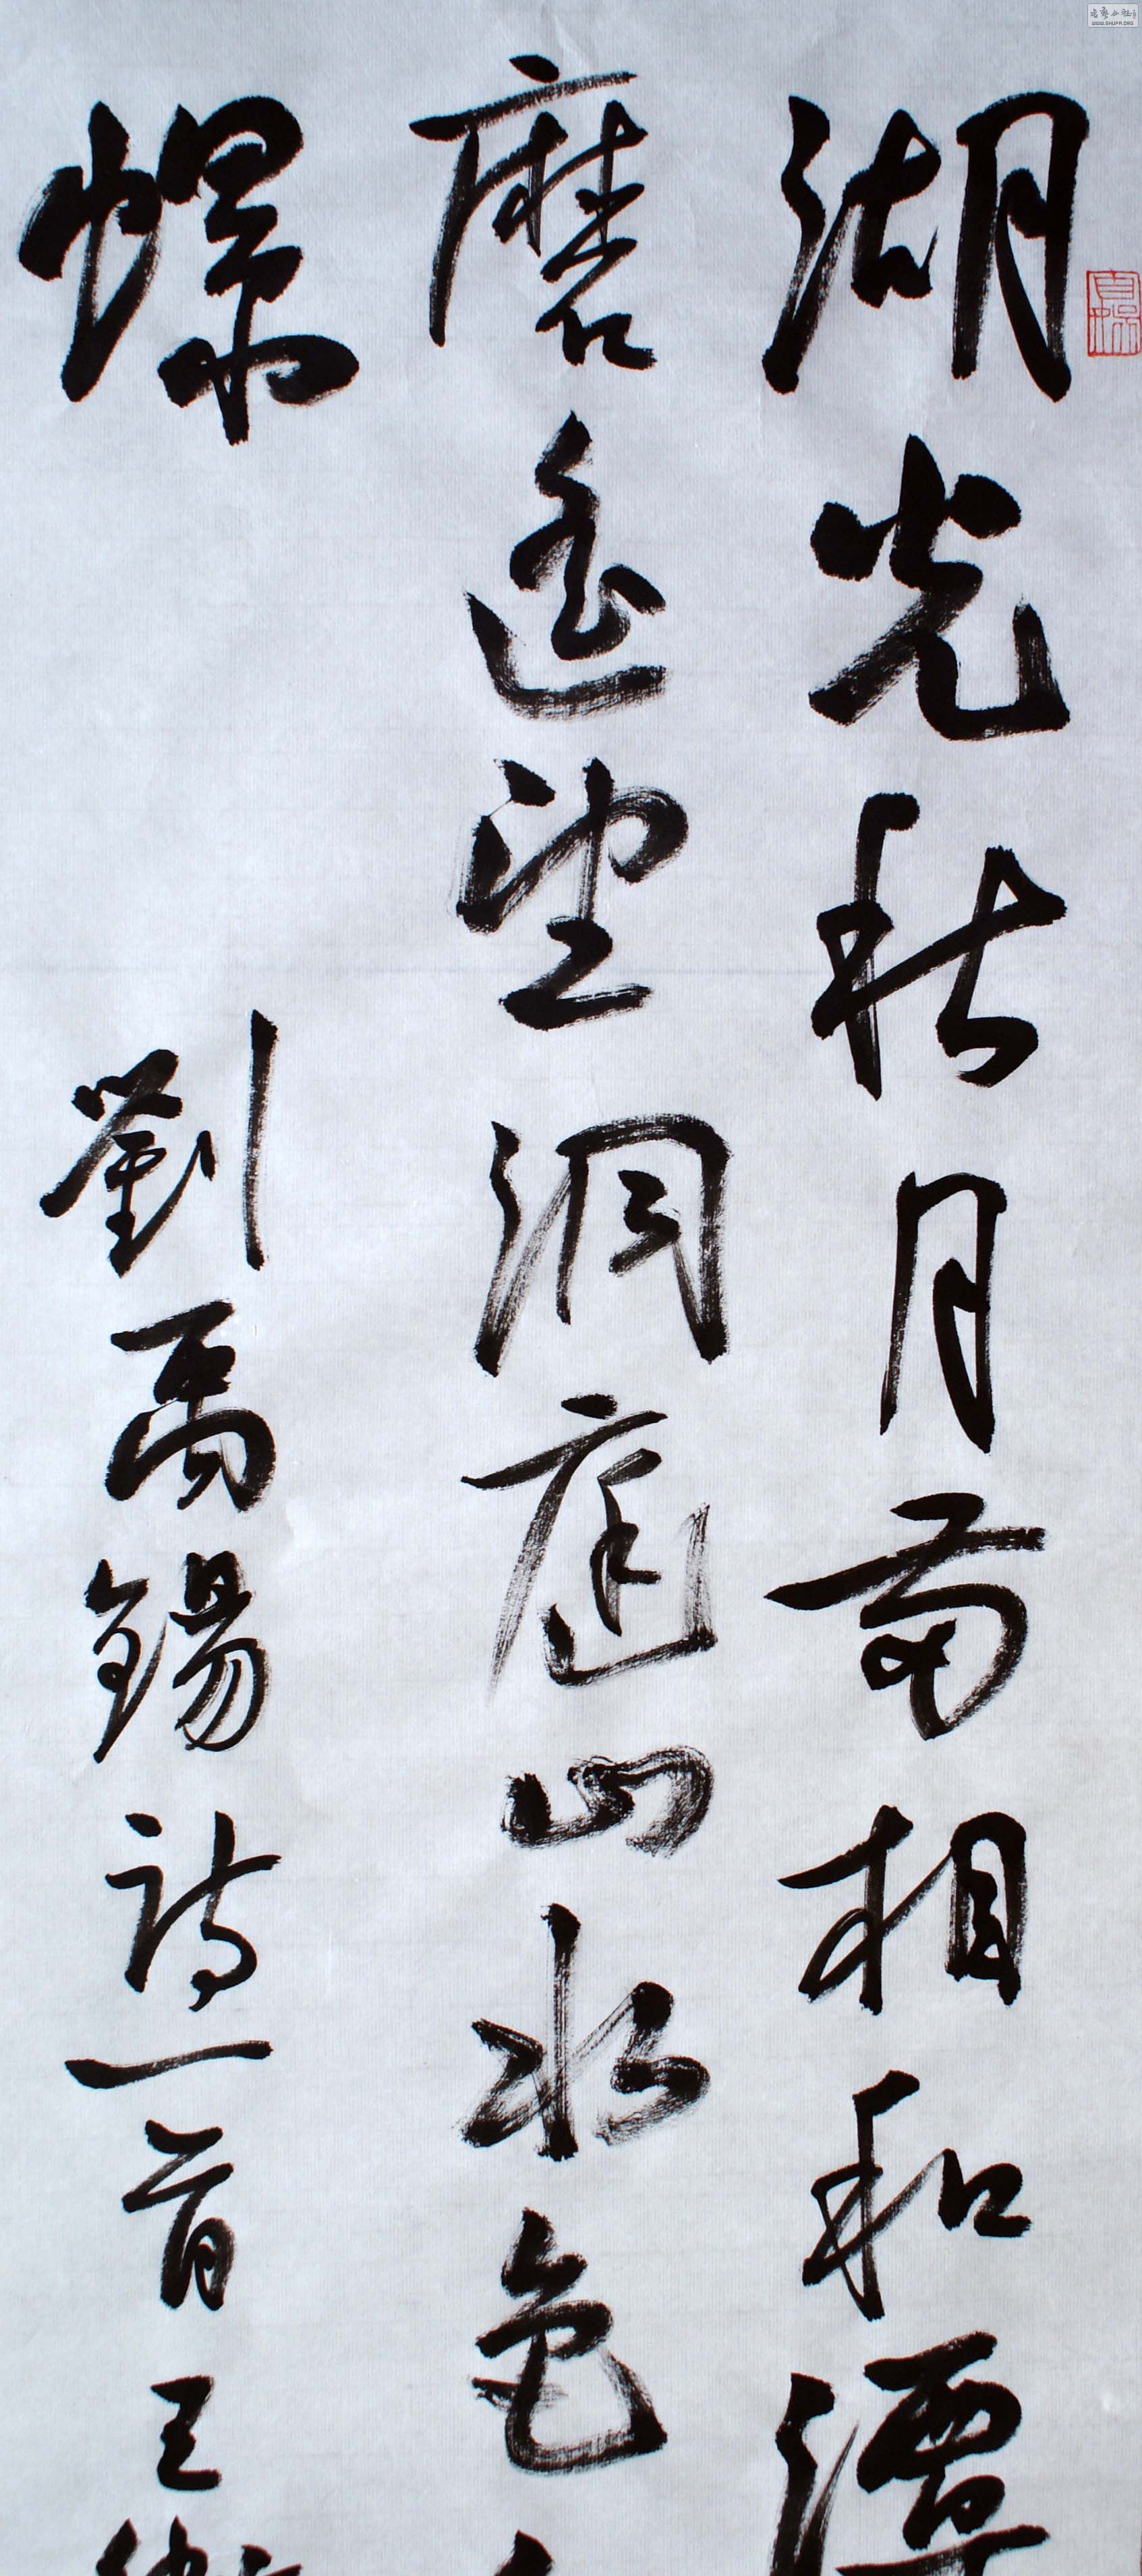 湖光秋月兩相和潭
磨遙望洞庭山水色
螺
劉禹錫詩一首王
WWW.SHUFA.ORG